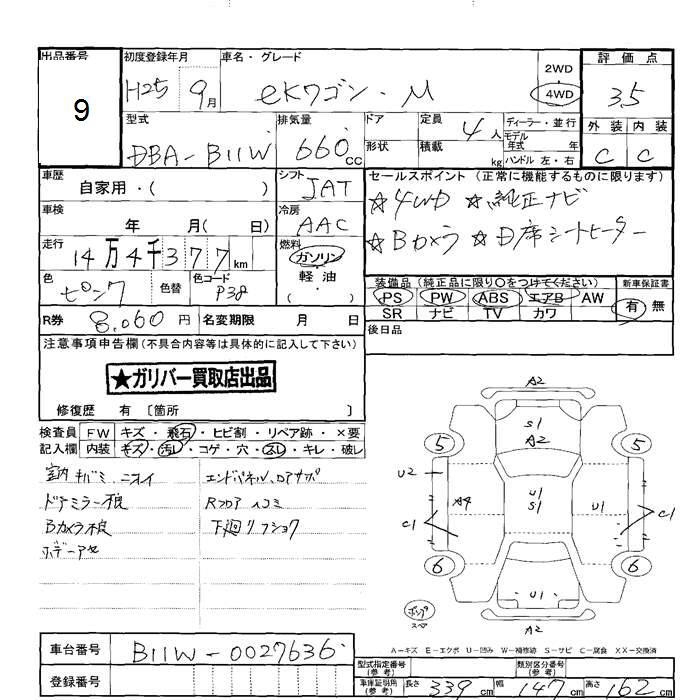 出品番号 初度登録年月 車名・グレード 2WD 評価点
9 H25 9月 eKワゴン・M 4WD 3.5
型式 排気量 ドア 定員 4人 ディーラー・並行 外装 内装
DBA-B11W 660cc 形状 積載 kg モデル年式 年 ハンドル 左・右 C C
車歴 シフト セールスポイント (正常に機能するものに限ります)
自家用・( ) JAT ☆4WD ☆純正ナビ
車検 年 月( 日) 冷房 AAC ☆Bカメラ ☆D席シートヒーター
走行 14万4千377km 燃料 ガソリン 軽油 ( )
色 ピンク 色替 色コード P38 装備品 (純正品に限り○をつけてください) 新車保証書
PS PW ABS エアB AW 有 無
SR ナビ TV カワ
R券 8,060円 名変期限 月 日 後日品
注意事項申告欄(不具合内容等は具体的に記入して下さい)
★ガリバー買取店出品
修復歴 有 〔箇所 〕
検査員 FW キズ・飛石・ヒビ割・リペア跡・×要
記入欄 内装 キズ・汚レ・コゲ・穴・スレ・キレ・破レ
室内キバミ、ニオイ エンドパネル、ロアサポ
ドアミラー不良 Rフロア凹コミ
Bカメラ不良 下廻リフショク
ボデーアセ
A2
S1
A2
5 5
U2 A4 U1 S1 U1
C1 C1
6 6
U1
A2
スペア
A-キズ E-エクボ U-凹み W-補修跡 S-サビ C-腐食 XX-交換済
車台番号 B11W-0027636
登録番号
型式指定番号(参考) 類別区分番号(参考)
車庫証明用(参考) 長さ 339cm 幅 147cm 高さ 162cm